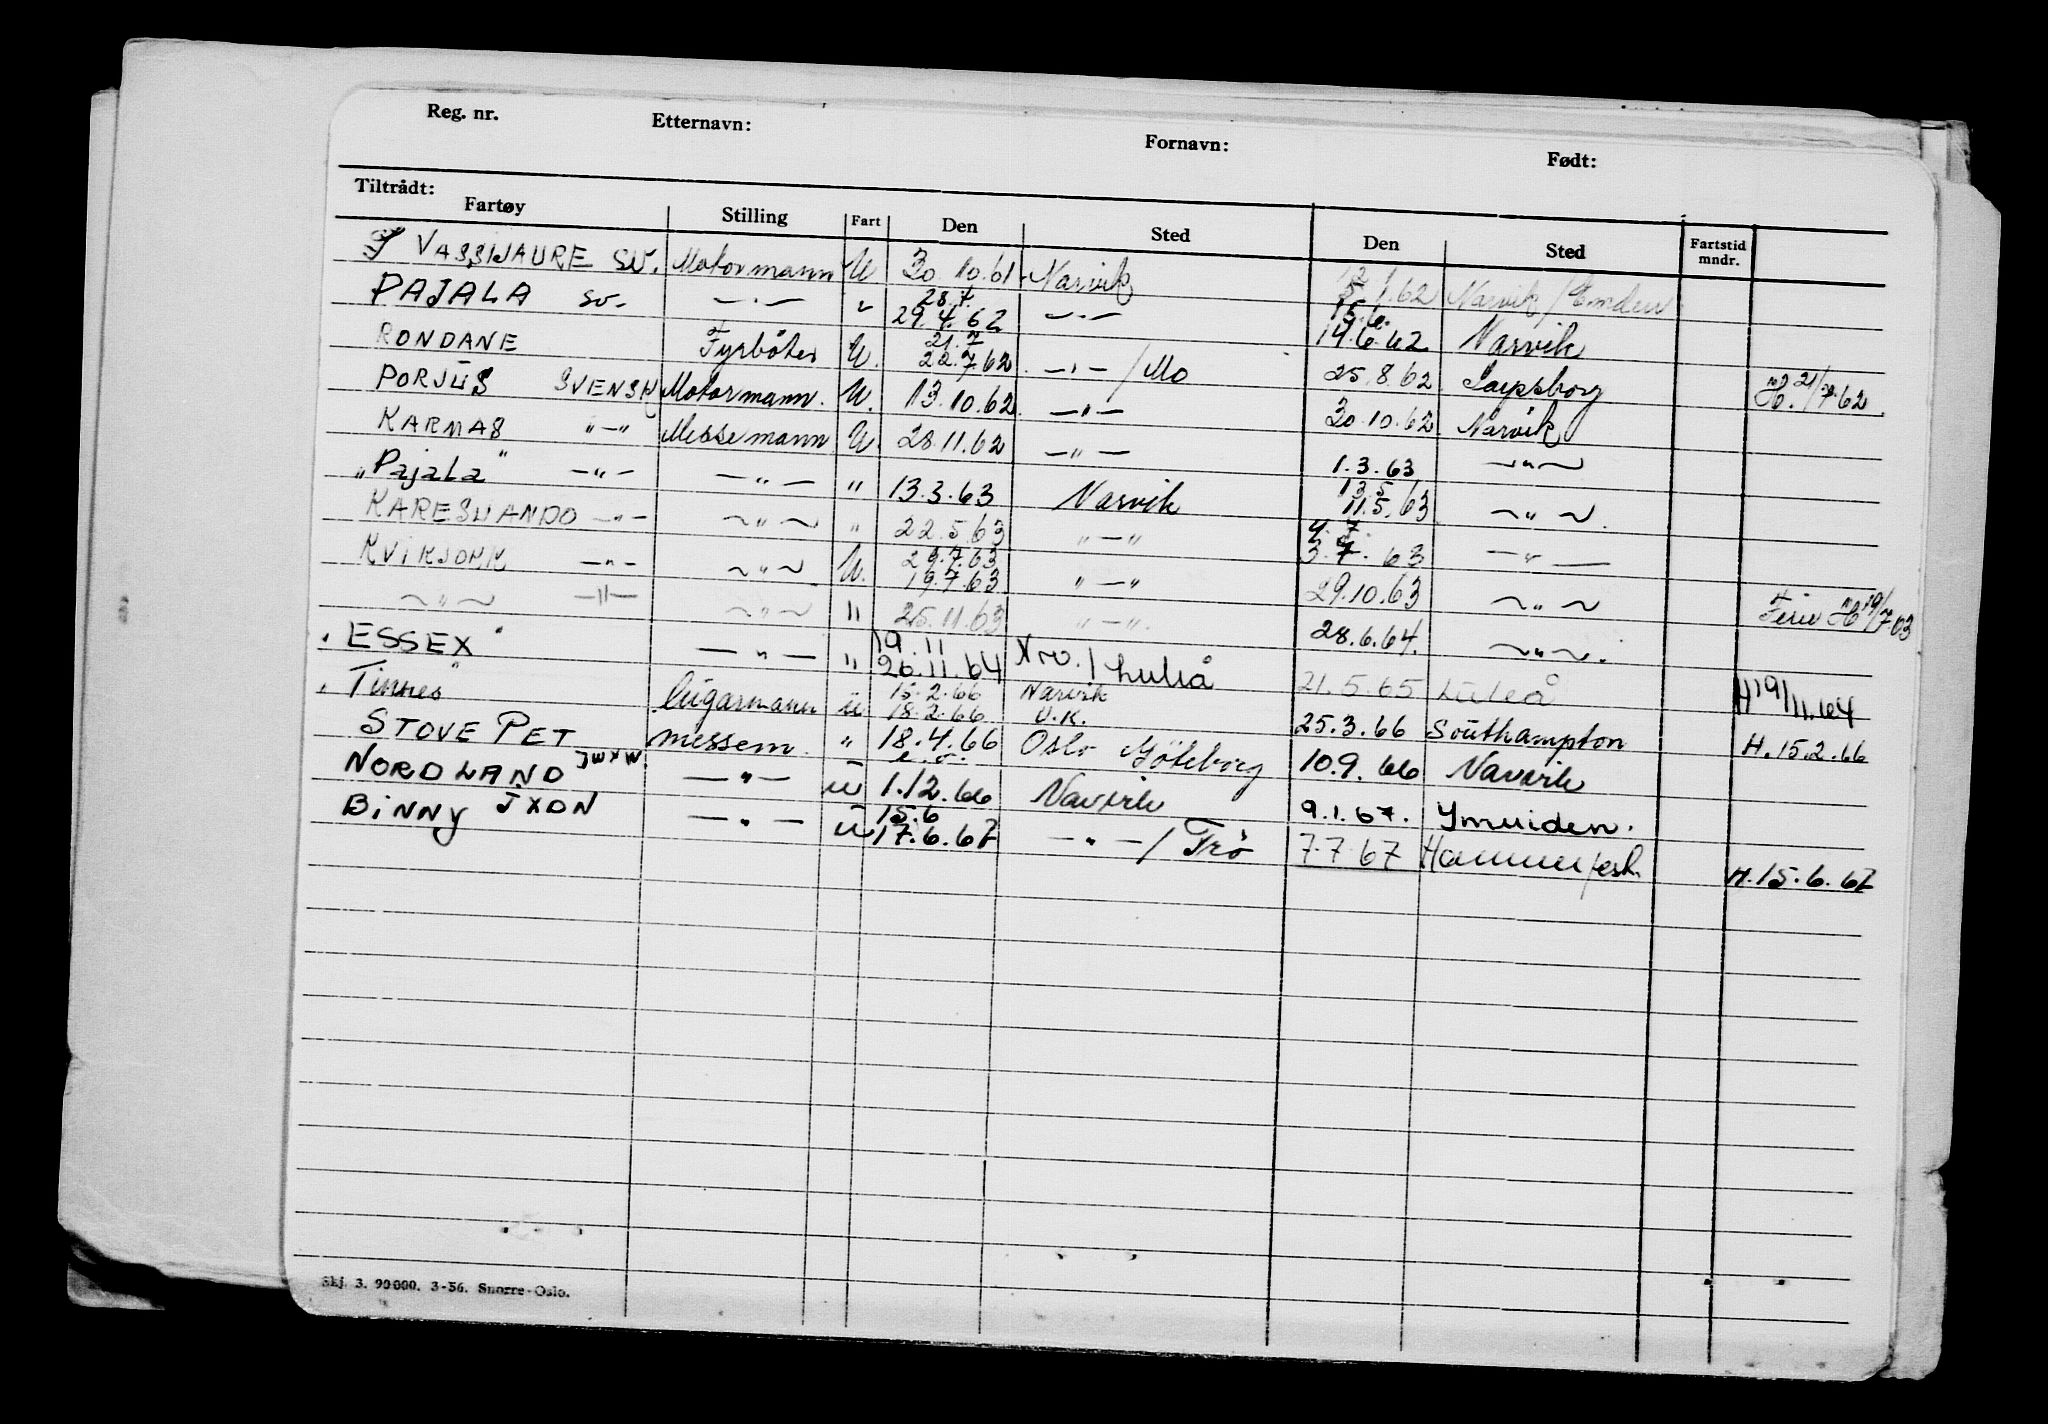 Reg. nr. Etternavn: Fornavn: Født:
Tiltrådt:
Fartøy Stilling Fart Den Sted Den Sted Fartstid mndr.
VASSIJAURE SV. Motormann U 30.10.61 Narvik 1.62 Narvik / Emden
28.7. 15.6.
PAJALA SV. —·— " 29.4.62 —·— 14.6.62 Narvik
21.7
RONDANE Fyrbøter U. 22.7.62 —·— / Mo 25.8.62 Sarpsborg H. 21/7.62
PORJUS SVENSK Motormann. U. 13.10.62 —"— 30.10.62 Narvik
KARMAS "—" Messemann U. 28.11.62 —"— 1.3.63 —"—
13.5
"Pajala" —"— —"— " 13.3.63 Narvik 11.5.63 —"—.
4.7
KARESUANDO —"— —"— " 22.5.63 "—" 3.7.63 —"—
29.7.63
KVIKJOKK —"— —"— U. 19.7.63 "—" 29.10.63 —"— Ferie H 19/7.63
—"— —"— —"— " 25.11.63 "—". 28.6.64. —"—.
19.11
"ESSEX" —"— " 26.11.64 Nrv. / Luleå 21.5.65 Luleå H 19/11.64
15.2.66 Narvik
"Tinnes" lugarmann u 18.2.66 U.K. 25.3.66 Southampton H. 15.2.66
STOVE PET JWXW messem. " 18.4.66 Oslo Göteborg 10.9.66 Narvik
NORDLAND —"— u 1.12.66 Narvik 9.1.67. Ymuiden.
15.6
BINNY JXDN —"— u 17.6.67 —"— / Trö 7.7.67 Hammerfest. H. 15.6.67
Skj. 3. 90000. 3-56. Snorre-Oslo.